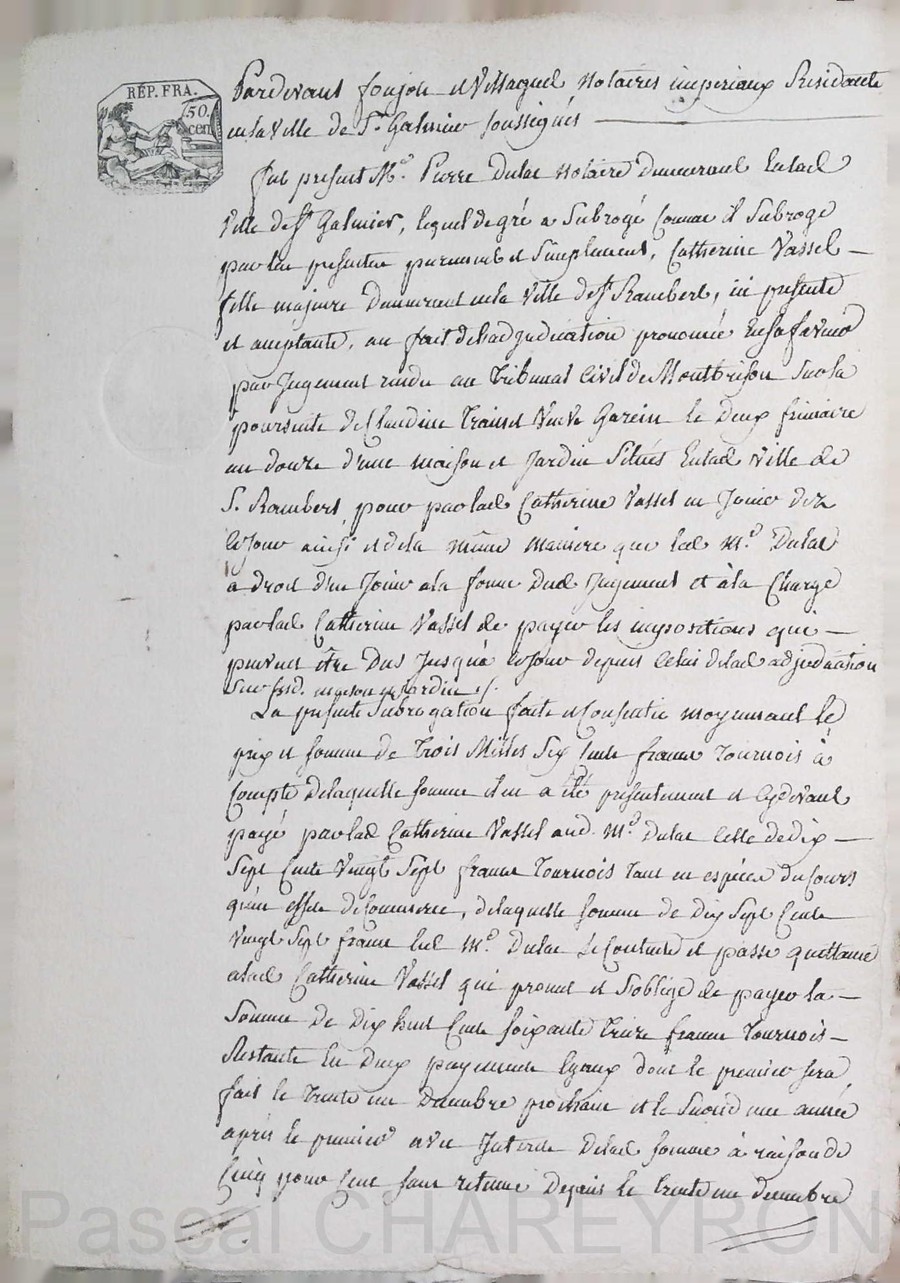 RÉP. FRA.
50.
cen
Pardevant foujols et Villagues Notaires imperiaux Residants
en la ville de St. Galmier soussignés
fut present Me. Pierre Dulac notaire demeurant en lad
ville de St Galmier, lequel de gré a Subrogé Comme il Subroge
par les presentes purement et Simplement, Catherine Vassel
fille majeure demeurant en la Ville de St Rambert, ici presente
et acceptante, au fait de l'adjudication prononcée en sa faveur
par Jugement rendu au Tribunal Civil de Montbrison Sur la
poursuite de Claudine veuve Garein le deux frimaire
an douze d'une maison et Jardin Situés en lad ville de
St. Rambert pour par lad Catherine Vassel en Jouir dez
ce Jour ainsi et de la même maniere que led Me. Dulac
a droit d'en Jouir a la forme dud Jugement et à la Charge
par lad Catherine Vassel de payer les impositions qui
peuvent être Dus Jusqu'à ce Jour depuis Celui de lad adjudication
Sur lesd. maison et Jardin ./.
La presente Subrogation faite et Consentie moyennant le
prix et somme de Trois Milles Six Cents francs Tournois à
Compte de laquelle somme il en a été presentement et cydevant
payé par lad Catherine Vassel aud. Me. Dulac Celle de dix
Sept Cents Vingt Sept francs Tournois tant en espèces du Cours
qu'en effets de Commerce, de laquelle somme de dix Sept Cents
Vingt Sept francs led Me. Dulac Se Contente et passe quittance
a lad Catherine Vassel qui promet et S'oblige de payer la
Somme de dix huit Cents soixante treize francs Tournois
Restante En Deux payements Egaux dont le premier sera
fait le trente un Decembre prochain et le Second une année
après le premier avec Interets de lad somme à raison de
Cinq pour Cent sans retenue Depuis le trente un decembre
Pascal CHAREYRON